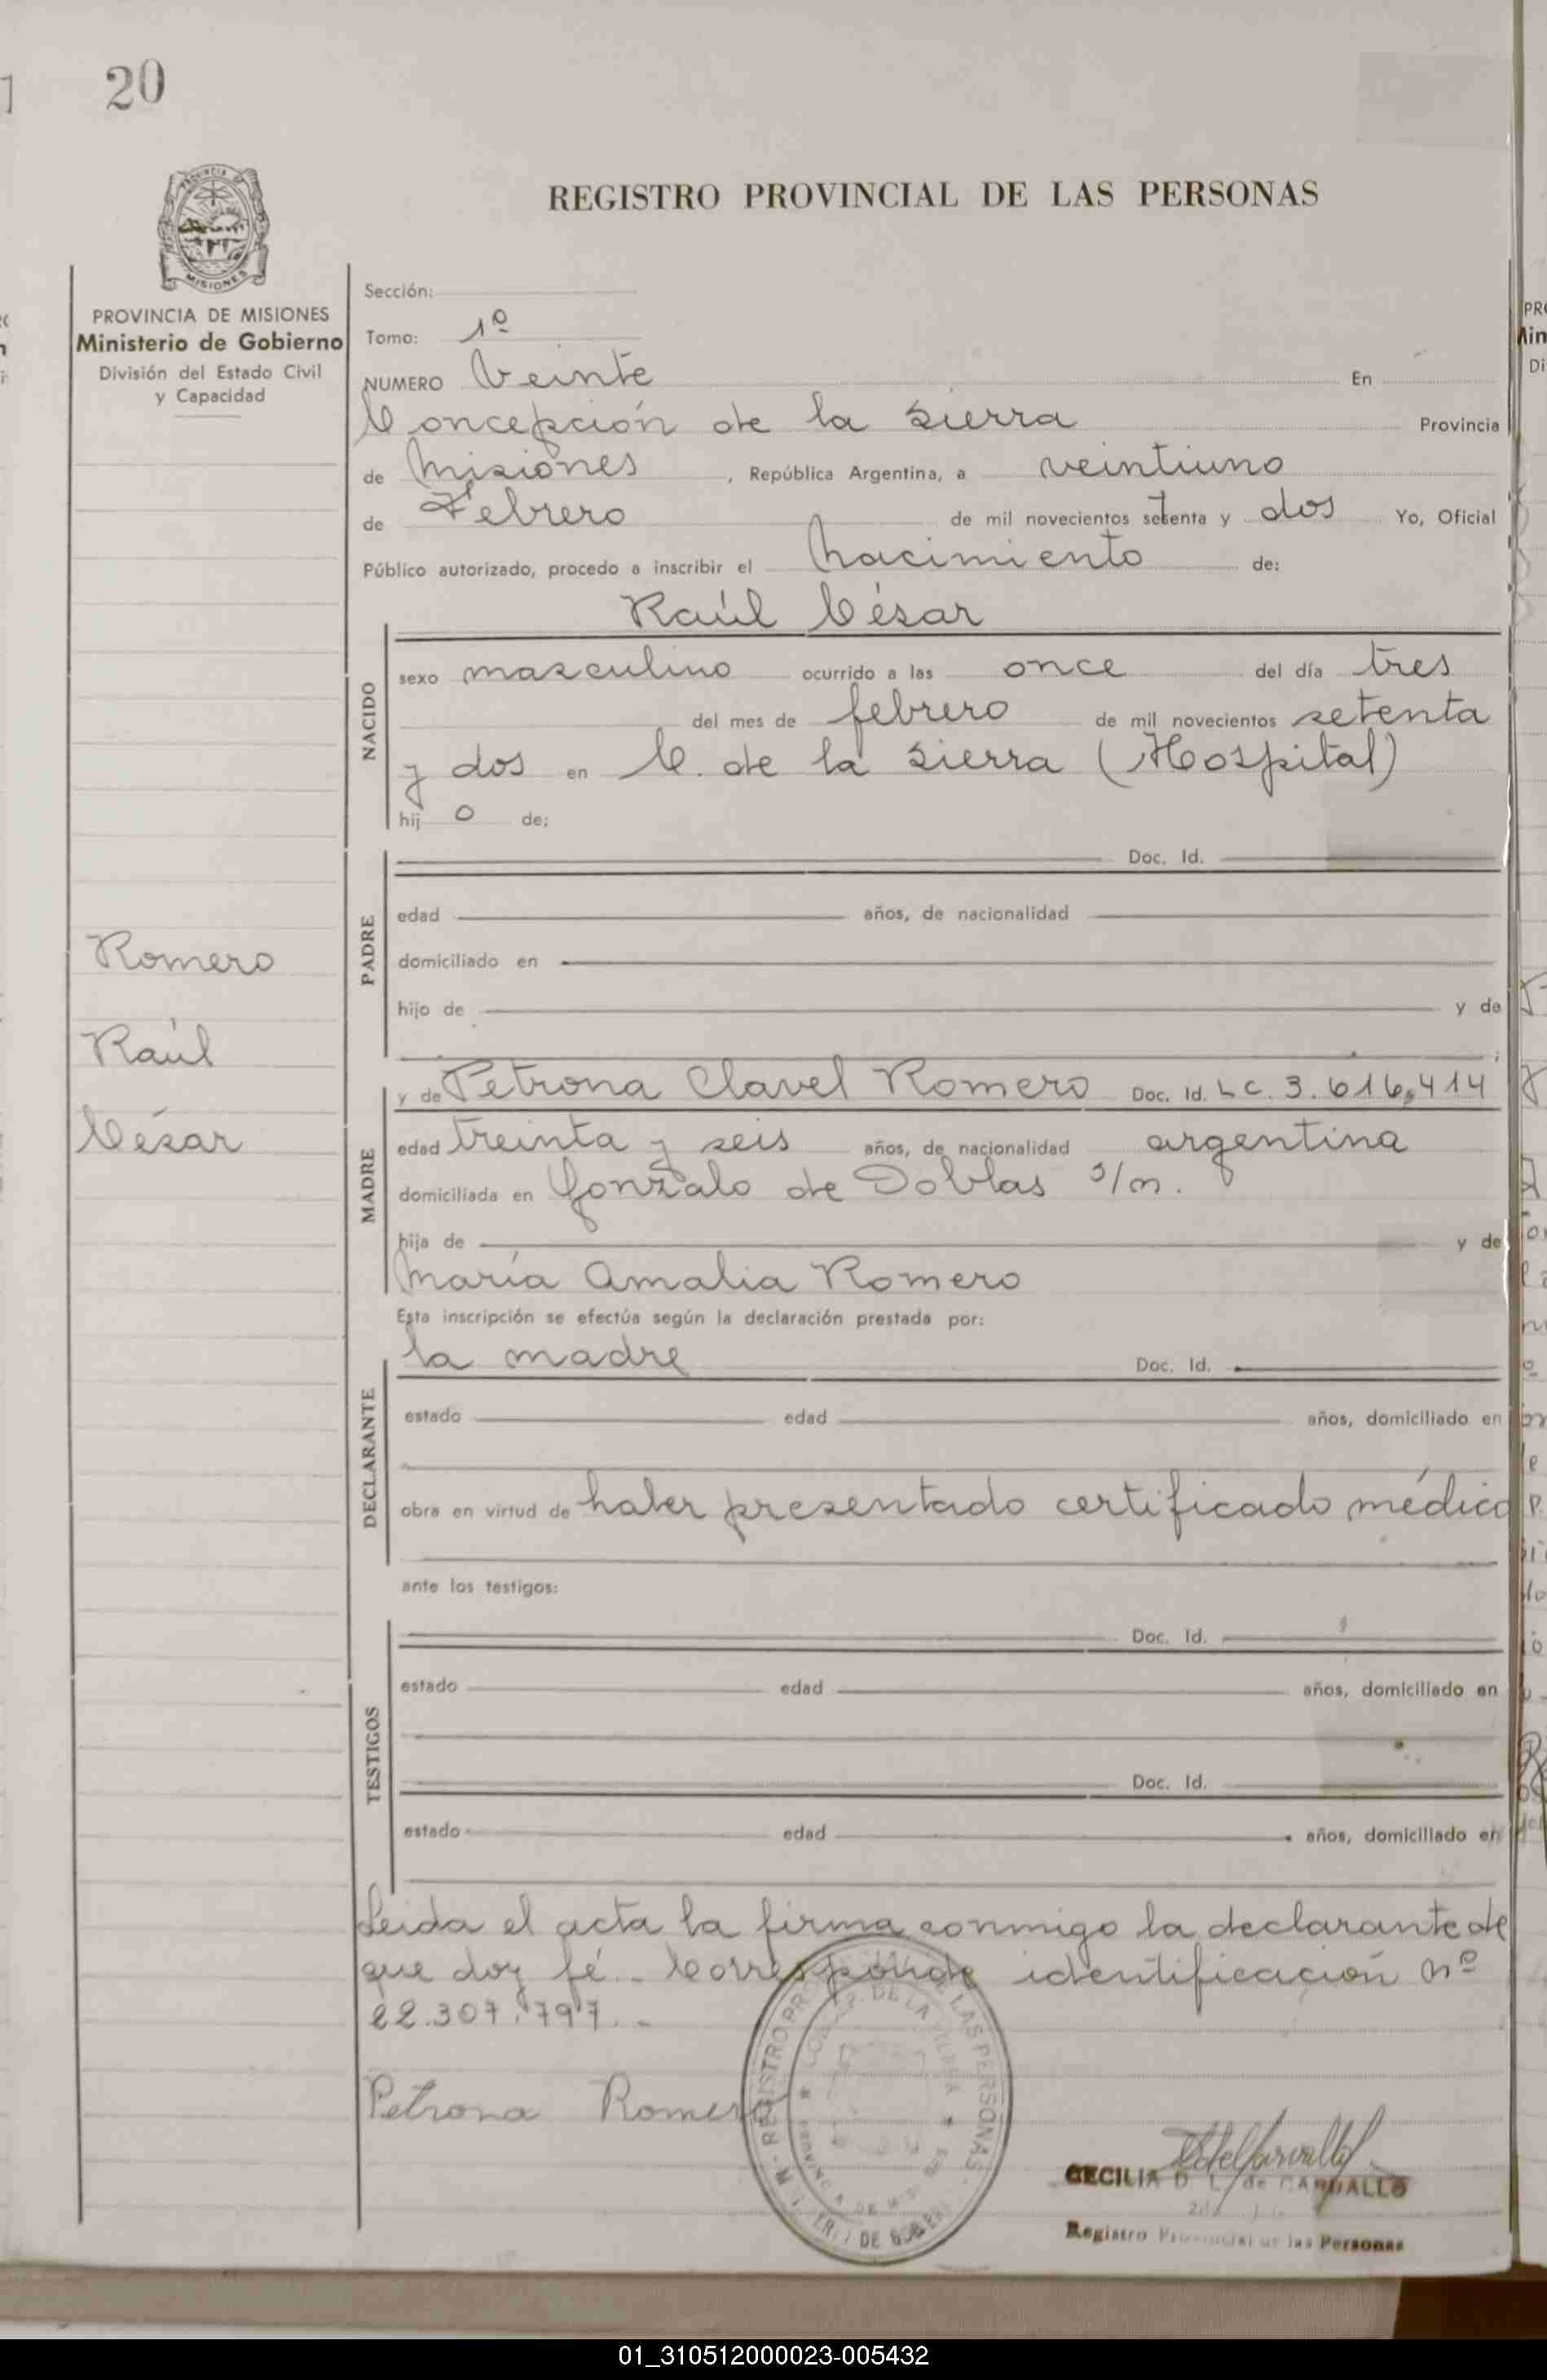 20
REGISTRO PROVINCIAL DE LAS PERSONAS
PROVINCIA DE MISIONES
Ministerio de Gobierno
División del Estado Civil
y Capacidad
Sección:
Tomo: 1º
NUMERO Veinte En
Concepción de la Sierra Provincia
de Misiones, República Argentina, a veintiuno
de Febrero de mil novecientos setenta y dos Yo, Oficial
Público autorizado, procedo a inscribir el Nacimiento de:
Raúl César
NACIDO
sexo masculino ocurrido a las once del día tres
del mes de febrero de mil novecientos setenta
y dos en C. de la Sierra (Hospital)
hijo de:
PADRE
Doc. Id.
edad años, de nacionalidad
domiciliado en
hijo de y de
;
Romero
Raúl
César
MADRE
y de Petrona Clavel Romero Doc. Id. L C. 3.616,414
edad treinta y seis años, de nacionalidad argentina
domiciliada en Gonzalo de Doblas s/n.
hija de y de
María Amalia Romero
Esta inscripción se efectúa según la declaración prestada por:
DECLARANTE
la madre Doc. Id.
estado edad años, domiciliado en
obra en virtud de haber presentado certificado médico
ante los testigos:
TESTIGOS
Doc. Id.
estado edad años, domiciliado en
Doc. Id.
estado edad años, domiciliado en
Leida el acta la firma conmigo la declarante de
que doy fé.. Corresponde identificación nº
22.307.797.-
Petrona Romero
REGISTRO PROVINCIAL DE LAS PERSONAS
CECILIA D. L. de CARVALLO
Registro Provincial de las Personas
01_310512000023-005432